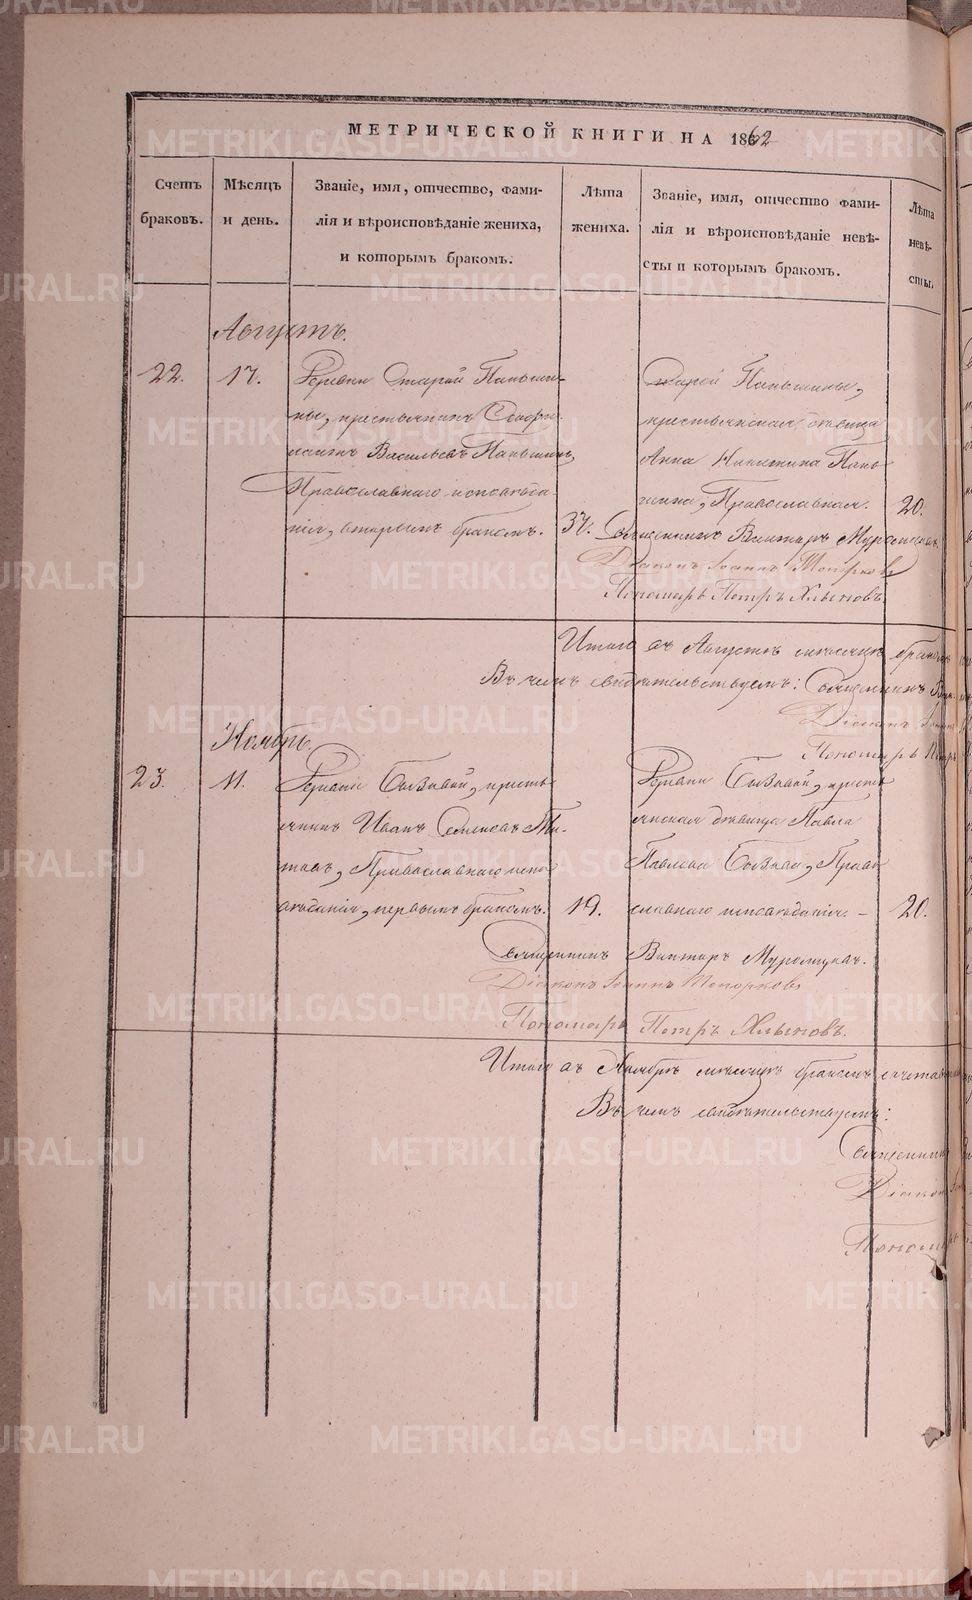 МЕТРИЧЕСКОЙ КНИГИ НА 1862
Счетъ браковъ.
Мѣсяцъ и день.
Званіе, имя, отчество, фами-
лія и вѣроисповѣданіе жениха,
и которымъ бракомъ.
Лѣта жениха.
Званіе, имя, отчество фами-
лія и вѣроисповѣданіе невѣ-
сты и которымъ бракомъ.
Лѣта невѣ-
сты.
Августъ.
22.
17.
Деревни Старой Паньши-
ны, крестьянинъ
Васильевъ Паньшинъ,
Православнаго исповѣда-
нія, вторымъ бракомъ.
37.
Старой Паньшины,
крестьянская дѣвица
Анна Паньшина, Православная.
20.
Священникъ Викторъ
Діаконъ Іоаннъ Топорковъ
Пономарь Петръ Хлыновъ
Итого въ Августѣ мѣсяцѣ
Въ чемъ свидѣтельствуемъ: Священникъ
Діаконъ
Пономарь
Ноябрь.
23.
11.
Деревни кресть-
янинъ Иванъ
Православнаго испо-
вѣданія, первымъ бракомъ.
19.
Деревни кресть-
янская дѣвица Павла
Павлова Право-
славнаго исповѣданія. –
20.
Священникъ Викторъ
Діаконъ Іоаннъ Топорковъ
Пономарь Петръ Хлыновъ.
Итого въ Ноябрѣ мѣсяцѣ бракомъ
Въ чемъ свидѣтельствуемъ:
Священникъ
Діаконъ
Пономарь
METRIKI.GASO-URAL.RU